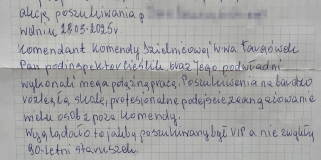 akcję poszukiwania p
w dniu 28.03.2025r
Komendant Komendy Dzielnicowej W-wa Targówek
Pan podinspektor Cieślik oraz jego podwładni
wykonali mega potężną pracę. Poszukiwania na bardzo
rozległą skalę, profesjonalne podejście, zaangażowanie
wielu osób z poza komendy.
Wyglądało to jakby poszukiwany był VIP a nie zwykły
90-letni staruszek.